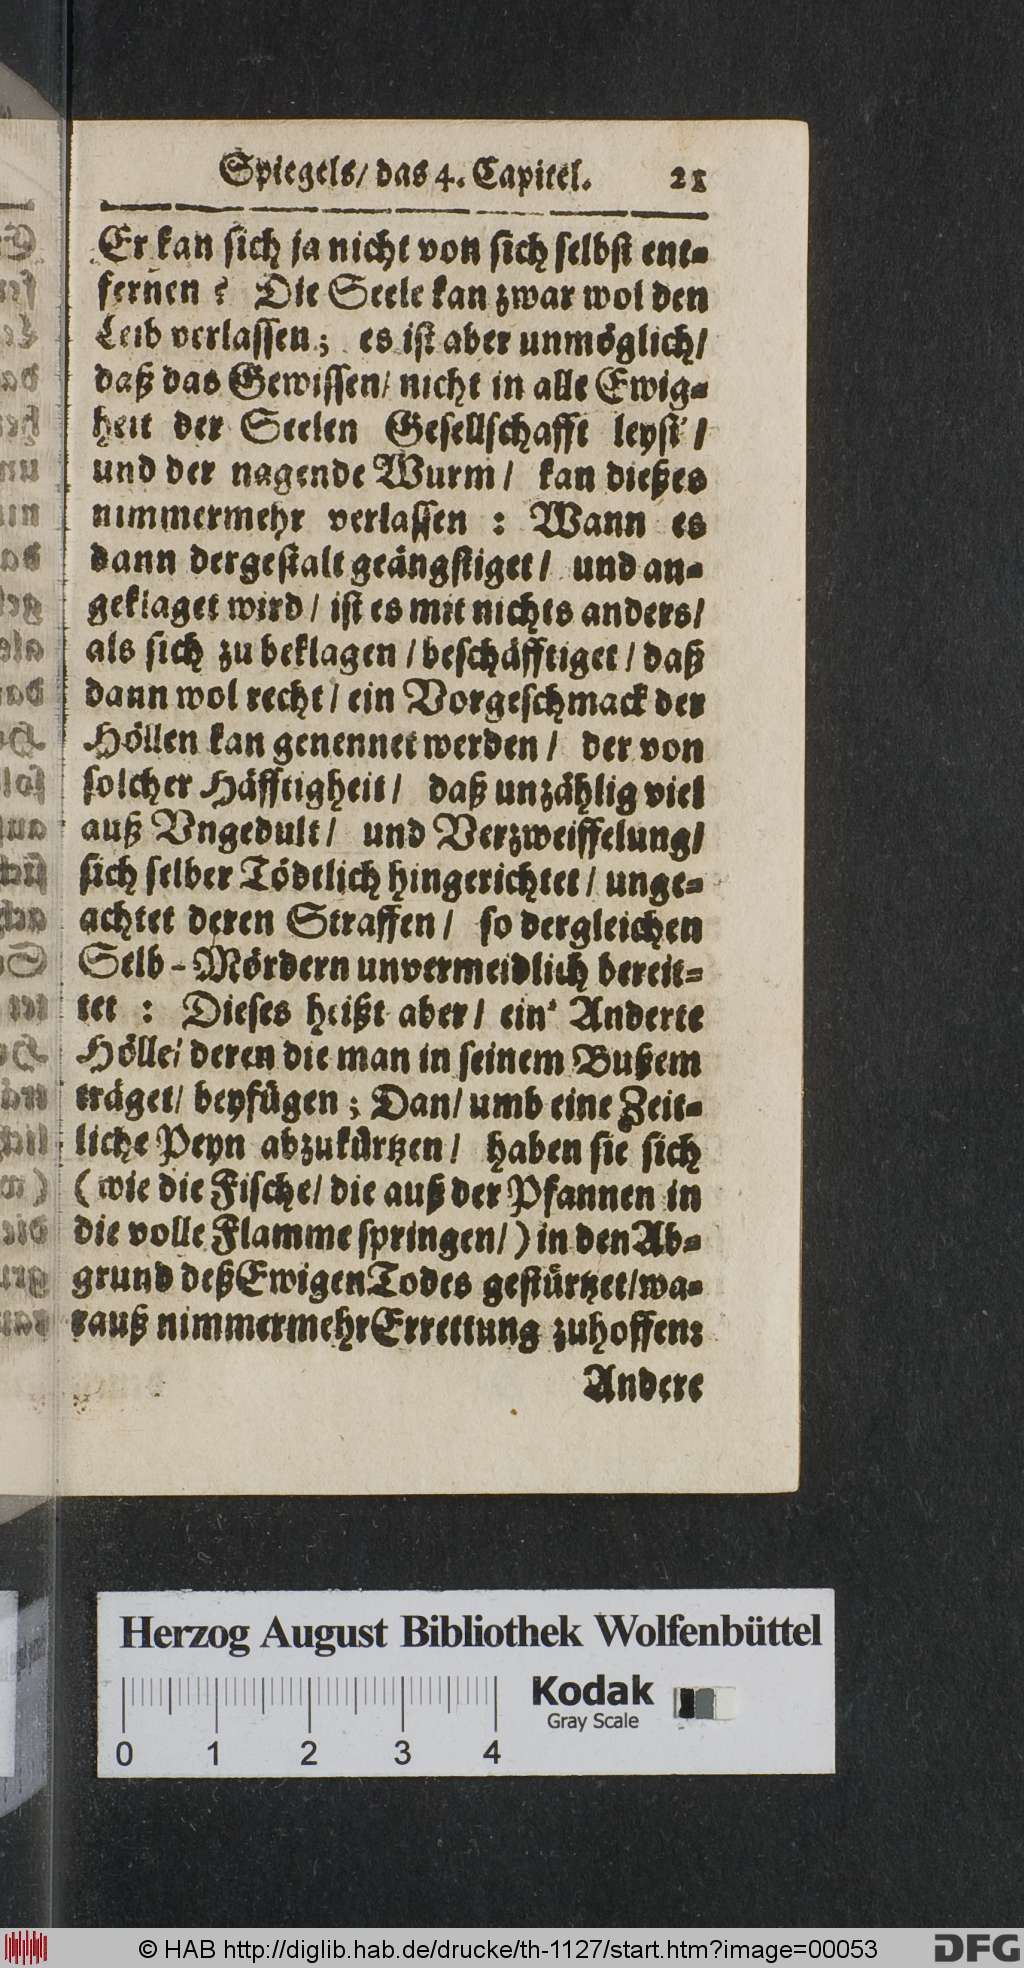 Spiegels/ das 4. Capitel. 21
Er kan sich ja nicht von sich selbst ent-
fernen? Die Seele kan zwar wol den
Leib verlassen; es ist aber unmöglich/
daß das Gewissen/ nicht in alle Ewig-
heit der Seelen Gesellschafft leyst'/
und der nagende Wurm/ kan dießes
nimmermehr verlassen: Wann es
dann dergestalt geängstiget/ und an-
geklaget wird/ ist es mit nichts anders/
als sich zu beklagen/ beschäfftiget/ daß
dann wol recht/ ein Vorgeschmack der
Höllen kan genennet werden/ der von
solcher Häfftigheit/ daß unzählig viel
auß Vngedult/ und Verzweiffelung/
sich selber Tödtlich hingerichtet/ unge-
achtet deren Straffen/ so dergleichen
Selb-Mördern unvermeidlich bereit-
tet: Dieses heißt aber/ ein' Anderte
Hölle/ deren die man in seinem Bußem
träget/ beyfügen; Dan/ umb eine Zeit-
liche Peyn abzukürtzen/ haben sie sich
(wie die Fische/ die auß der Pfannen in
die volle Flamme springen/) in den Ab-
grund deß Ewigen Todes gestürtzet/ wa-
rauß nimmermehr Errettung zuhoffen:
Andere
Herzog August Bibliothek Wolfenbüttel
Kodak
Gray Scale
0 1 2 3 4
© HAB http://diglib.hab.de/drucke/th-1127/start.htm?image=00053
DFG